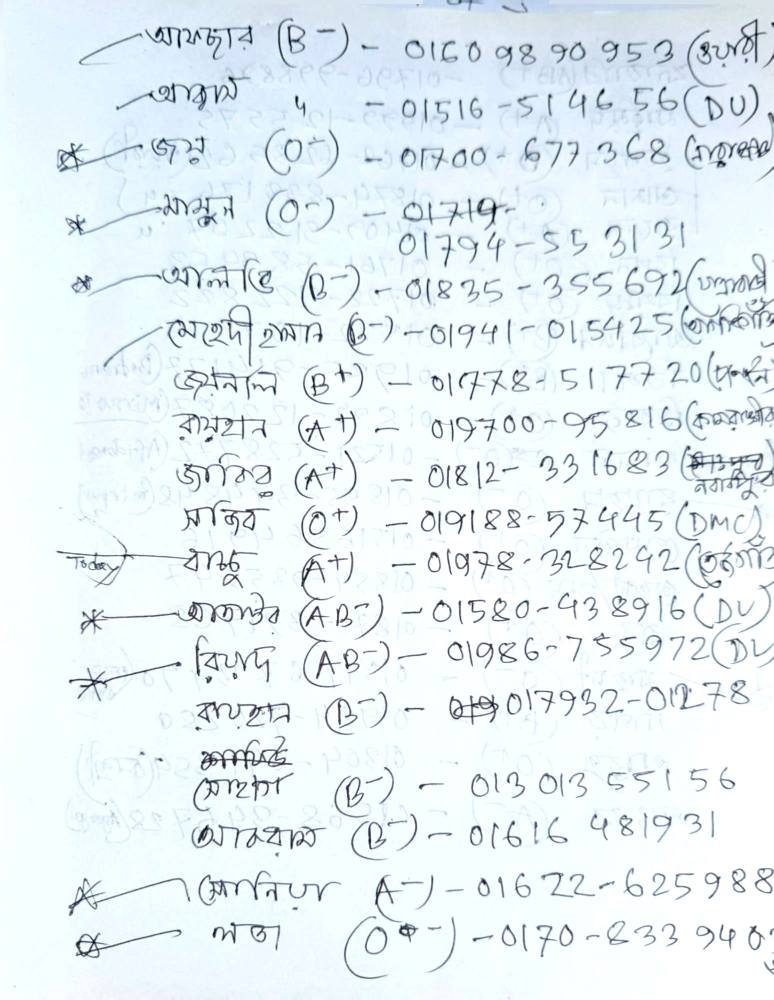 আফছার (B-) - 01609890953 (ওয়ারী)
আব্বাস " - 01516-514656 (DU)
জয় (O-) - 01700-677368
মামুন (O-) - 01719-
01794-553131
(B-) - 01835-355692
মেহেদী হাসান (B-) - 01941-015425
জয়নাল (B+) - 01778-517720
রায়হান (A+) - 019700-95816
জাকির (A+) - 01812-331683
নবাবপুর
সাকিব (O+) - 019188-57445 (DMC)
Today বাচ্চু (A+) - 01978-328242
(AB-) - 01580-438916 (DU)
রিয়াদ (AB-) - 01986-755972 (DU
রায়হান (B-) - 017932-01278
সোহাগ (B-) - 01301355156
আকরাম (B-) - 01616 481931
সোনিয়া A-) - 01622-625988
লতা (O-) - 0170-833940